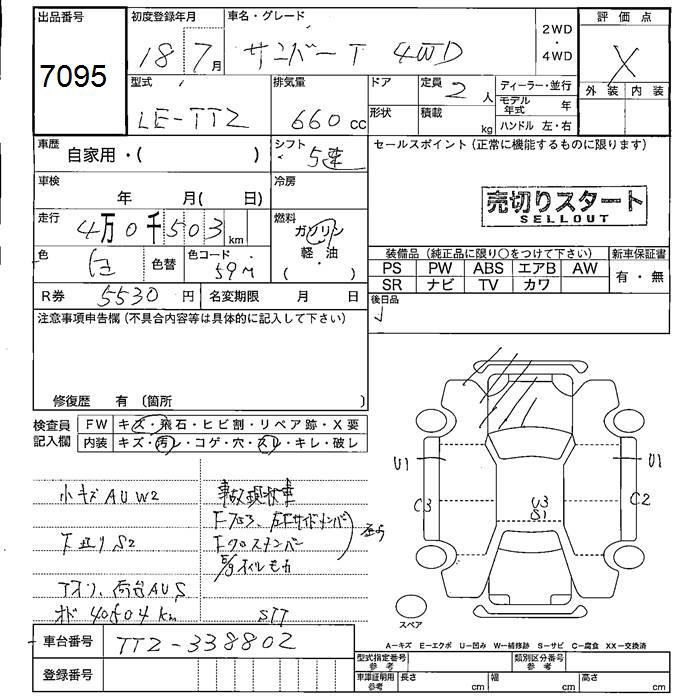 出品番号
7095
初度登録年月
18 7月
車名・グレード
サンバー T 4WD
2WD
・
4WD
評価点
X
外装 内装
型式
LE-TT2
排気量
660cc
ドア
形状
定員
2人
積載
kg
ディーラー・並行
モデル年式 年
ハンドル 左・右
車歴
自家用・( )
シフト
5速
車検
年 月( 日)
冷房
走行
4万0千503km
燃料
ガソリン
軽・油
( )
色
白
色替
色コード
59M
R券 5530円
名変期限 月 日
セールスポイント (正常に機能するものに限ります)
売切りスタート
SELLOUT
装備品 (純正品に限り○をつけて下さい)
PS PW ABS エアB AW
SR ナビ TV カワ
新車保証書
有・無
後日品
注意事項申告欄 (不具合内容等は具体的に記入して下さい)
修復歴 有 (箇所 )
検査員記入欄
FW キズ・飛石・ヒビ割・リペア跡・X要
内装 キズ・汚レ・コゲ・穴・スレ・キレ・破レ
小キズAUW2
下廻りS2
アオリ、荷台AUS
オド 40504km
Fクロスメンバー
STT
U1
U1
C3
C2
U3
S1
スペア
A-キズ E-エクボ U-凹み W-補修跡 S-サビ C-腐食 XX-交換済
車台番号 TT2-338802
登録番号
型式指定番号 参考
類別区分番号 参考
車庫証明用 参考
長さ cm
幅 cm
高さ cm